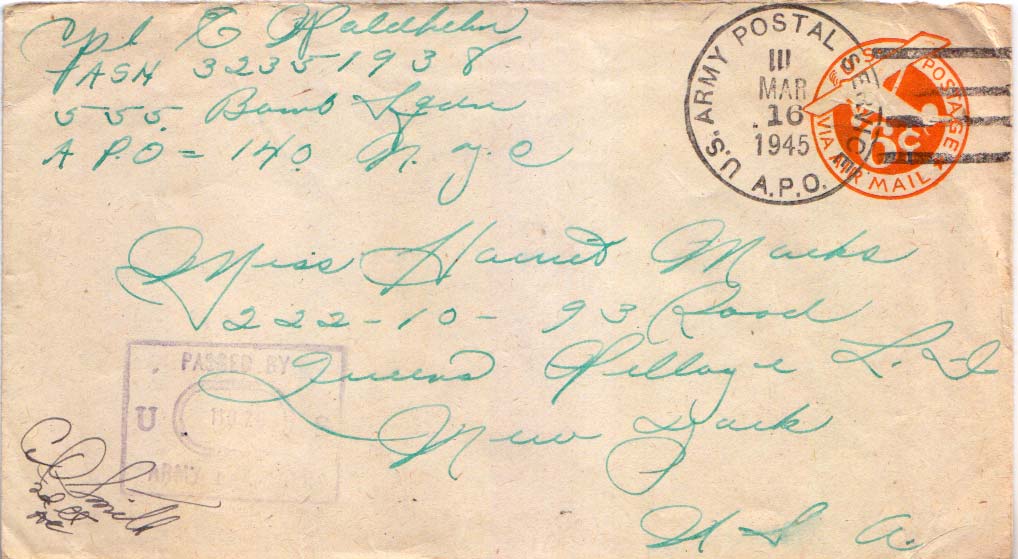 Cpl E Waldhelm
ASN 32351938
555 Bomb Sqdn
A P.O - 140 N.Y.C
U.S. ARMY POSTAL SERVICE
III
MAR
16
1945
A.P.O.
U.S. POSTAGE
6c
VIA AIR MAIL
Miss Harriet Marks
222-10- 93 Road
Queens Village L. I
New York
U S A.
PASSED BY
U S
ARMY EXAMINER
Smith
2d Lt
AC